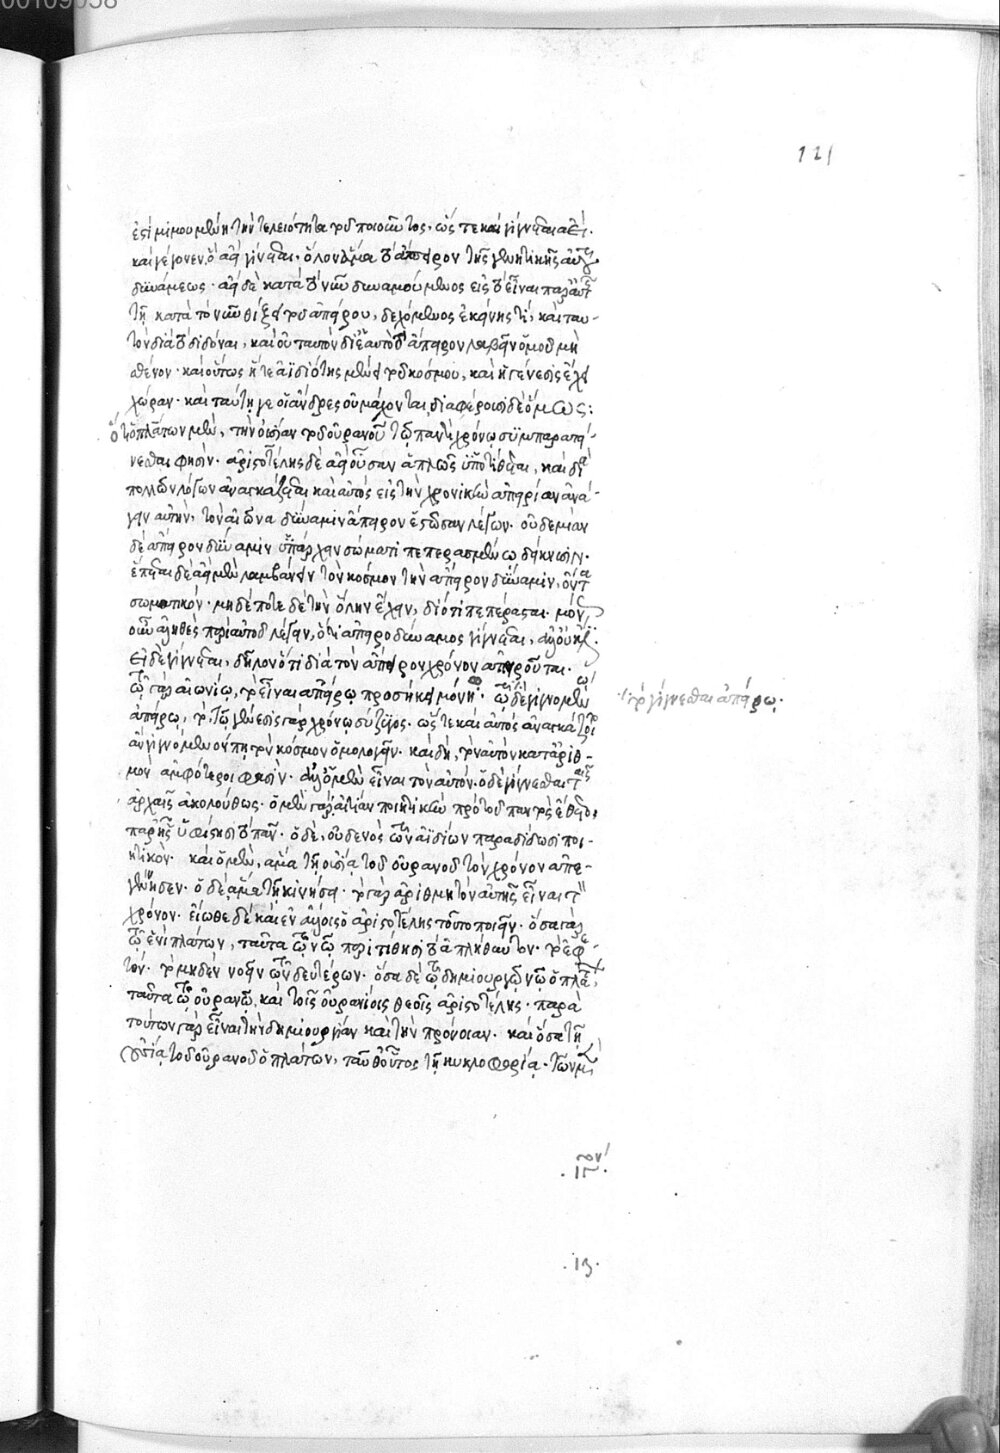 00109058
121
ἐστὶ μιμουμένη τὴν τελειότητα τοῦ ποιοῦντος. ὥστε καὶ γίγνεται ἀεί.
καὶ γέγονεν ὃ ἀεὶ γίνεται. ὅλον ἅμα τὸ ἄπειρον τῆς γεννητικῆς αὐτοῦ
δυνάμεως. ἀεὶ δὲ κατὰ τὸ νῦν δυναμούμενος εἰς τὸ εἶναι παρ' αὐτοῦ
τῇ κατὰ τὸ νῦν θίξει τοῦ ἀπείρου, δεχόμενος ἐκείνης τι, καὶ ταυ-
τὸν διὰ τὸ διδόναι, καὶ οὐ ταυτὸν δι' ἑαυτὸ τὸ ἄπειρον λαβεῖν ὁμοῦ μὴ
σθένον. καὶ οὕτως ἥ τε ἀϊδιότης μένει τοῦ κόσμου, καὶ ἡ γένεσις ἔχει
χώραν. καὶ ταύτῃ γε οἱ ἄνδρες οὐ μάχονται, διαφέρουσι δὲ ὅμως:
ὅτι ὁ πλάτων μὲν, τὴν οὐσίαν τοῦ οὐρανοῦ τῷ παντὶ χρόνῳ συμπαρατεί-
νεσθαι φησίν. ἀριστοτέλης δὲ ἀεὶ οὖσαν ἁπλῶς ὑποτίθεται, καὶ διὰ
πολλῶν λόγων ἀναγκάζεται καὶ αὐτὸς εἰς τὴν χρονικὴν ἀπειρίαν ἀνά-
γειν αὐτὴν, τὸν αἰῶνα δύναμιν ἄπειρον ἑστῶσαν λέγων. οὐδεμίαν
δὲ ἄπειρον δύναμιν ὑπάρχειν σώματι πεπερασμένῳ δείκνυσιν.
ἕπεται δὲ ἀεὶ μὲν λαμβάνειν τὸν κόσμον τὴν ἄπειρον δύναμιν, ὄντα
σωματικόν. μηδέποτε δὲ τὴν ὅλην ἔχειν, διότι πεπέρασται. μόνως
οὖν ἀληθὲς περὶ αὐτοῦ λέγειν, ὅτι ἀπειροδύναμος γίγνεται, ἀλλ' οὐκ ἔστι.
εἰ δὲ γίγνεται, δῆλον ὅτι διὰ τὸν ἄπειρον χρόνον ἀπειροῦται.
τῷ γὰρ αἰωνίῳ, τὸ εἶναι ἀπείρῳ προσήκει μόνῃ. τῷ δὲ γιγνομένῳ
·τὸ γίγνεσθαι ἀπείρῳ.
ἀπείρῳ, τὸ, τῷ γένεσις γὰρ χρόνῳ σύζυγος. ὥστε καὶ αὐτὸς ἀναγκάζοιτο
ἂν γιγνόμενον πῃ τὸν κόσμον ὁμολογεῖν. καὶ δὴ, τὸν αὐτὸν κατ' ἀριθ-
μὸν ἀμφότεροι φασίν. ἀλλ' ὁ μὲν εἶναι τὸν αὐτὸν. ὁ δὲ γίγνεσθαι ταῖς
ἀρχαῖς ἀκολούθως. ὁ μὲν γὰρ αἰτίαν ποιητικὴν πρὸ τοῦ παντὸς ἔθετο.
παρ' ἧς ὑφίστησι τὸ πᾶν. ὁ δὲ, οὐδενὸς τῶν ἀϊδίων παραδίδωσι ποι-
ητικόν. καὶ ὁ μὲν, ἅμα τῇ οὐσίᾳ τοῦ οὐρανοῦ τὸν χρόνον ἀπε-
γέννησεν. ὁ δὲ, ἅμα τῇ κινήσει. τὸ γὰρ ἀριθμητὸν αὐτῆς εἶναι τὸν
χρόνον. εἴωθε δὲ καὶ ἐν ἄλλοις ὁ ἀριστοτέλης τοῦτο ποιεῖν. ὅσα γὰρ
τῷ ἑνὶ πλάτων, ταῦτα τῷ νῷ περιτίθησι τὸ ἀπλήθυντον. τὸ ἐφε-
τόν. τὸ μηδὲν νοεῖν τῶν δευτέρων. ὅσα δὲ τῷ δημιουργῷ νῷ ὁ πλάτων,
ταῦτα τῷ οὐρανῷ, καὶ τοῖς οὐρανίοις θεοῖς ἀριστοτέλης. παρὰ
τούτων γὰρ εἶναι τὴν δημιουργίαν καὶ τὴν πρόνοιαν. καὶ ὅσα τῇ
οὐσίᾳ τοῦ οὐρανοῦ ὁ πλάτων, ταῦθ' οὗτος τῇ κυκλοφορίᾳ. τῶν μὲν